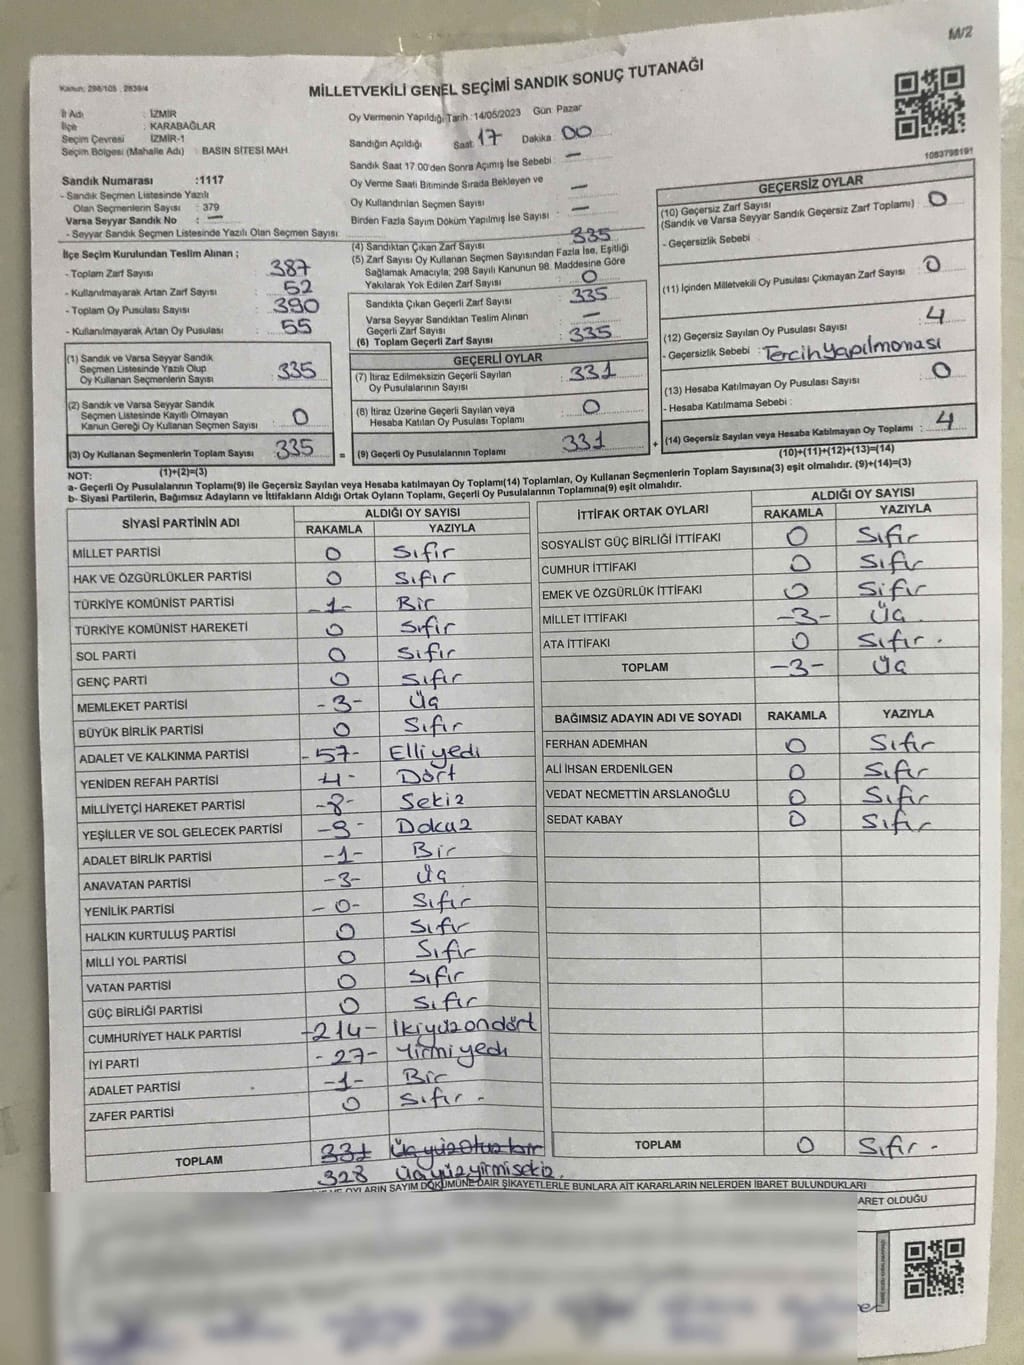 M/2
Kanun: 298/105 , 2839/4
MİLLETVEKİLİ GENEL SEÇİMİ SANDIK SONUÇ TUTANAĞI
İl Adı : İZMİR
İlçe : KARABAĞLAR
Seçim Çevresi : İZMİR-1
Seçim Bölgesi (Mahalle Adı) : BASIN SİTESİ MAH.
Oy Vermenin Yapıldığı Tarih :14/05/2023 Gün: Pazar
Sandığın Açıldığı Saat: 17 Dakika: 00
Sandık Saat 17:00'den Sonra Açımış İse Sebebi : —
Oy Verme Saati Bitiminde Sırada Bekleyen ve
Oy Kullandırılan Seçmen Sayısı : —
Birden Fazla Sayım Döküm Yapılmış İse Sayısı : —
1083798191
Sandık Numarası :1117
- Sandık Seçmen Listesinde Yazılı
Olan Seçmenlerin Sayısı : 379
Varsa Seyyar Sandık No : —
- Seyyar Sandık Seçmen Listesinde Yazılı Olan Seçmen Sayısı:
İlçe Seçim Kurulundan Teslim Alınan ;
- Toplam Zarf Sayısı : 387
- Kullanılmayarak Artan Zarf Sayısı : 52
- Toplam Oy Pusulası Sayısı : 390
- Kullanılmayarak Artan Oy Pusulası : 55
(1) Sandık ve Varsa Seyyar Sandık
Seçmen Listesinde Yazılı Olup
Oy Kullanan Seçmenlerin Sayısı : 335
(2) Sandık ve Varsa Seyyar Sandık
Seçmen Listesinde Kayıtlı Olmayan
Kanun Gereği Oy Kullanan Seçmen Sayısı : 0
(3) Oy Kullanan Seçmenlerin Toplam Sayısı : 335
(1)+(2)=(3)
(4) Sandıktan Çıkan Zarf Sayısı : 335
(5) Zarf Sayısı Oy Kullanan Seçmen Sayısından Fazla İse, Eşitliği
Sağlamak Amacıyla; 298 Sayılı Kanunun 98. Maddesine Göre
Yakılarak Yok Edilen Zarf Sayısı : 0
Sandıkta Çıkan Geçerli Zarf Sayısı : 335
Varsa Seyyar Sandıktan Teslim Alınan
Geçerli Zarf Sayısı : —
(6) Toplam Geçerli Zarf Sayısı : 335
GEÇERLİ OYLAR
(7) İtiraz Edilmeksizin Geçerli Sayılan
Oy Pusulalarının Sayısı : 331
(8) İtiraz Üzerine Geçerli Sayılan veya
Hesaba Katılan Oy Pusulası Toplamı : 0
= (9) Geçerli Oy Pusulalarının Toplamı : 331
GEÇERSİZ OYLAR
(10) Geçersiz Zarf Sayısı : 0
(Sandık ve Varsa Seyyar Sandık Geçersiz Zarf Toplamı)
- Geçersizlik Sebebi :
(11) İçinden Milletvekili Oy Pusulası Çıkmayan Zarf Sayısı : 0
(12) Geçersiz Sayılan Oy Pusulası Sayısı : 4
- Geçersizlik Sebebi : Tercih Yapılmaması
(13) Hesaba Katılmayan Oy Pusulası Sayısı : 0
- Hesaba Katılmama Sebebi :
+ (14) Geçersiz Sayılan veya Hesaba Katılmayan Oy Toplamı : 4
(10)+(11)+(12)+(13)=(14)
NOT:
a- Geçerli Oy Pusulalarının Toplamı(9) ile Geçersiz Sayılan veya Hesaba katılmayan Oy Toplamı(14) Toplamları, Oy Kullanan Seçmenlerin Toplam Sayısına(3) eşit olmalıdır. (9)+(14)=(3)
b- Siyasi Partilerin, Bağımsız Adayların ve İttifakların Aldığı Ortak Oyların Toplamı, Geçerli Oy Pusulalarının Toplamına(9) eşit olmalıdır.
SİYASİ PARTİNİN ADI ALDIĞI OY SAYISI
RAKAMLA YAZIYLA
MİLLET PARTİSİ 0 Sıfır
HAK VE ÖZGÜRLÜKLER PARTİSİ 0 Sıfır
TÜRKİYE KOMÜNİST PARTİSİ -1- Bir
TÜRKİYE KOMÜNİST HAREKETİ 0 Sıfır
SOL PARTİ 0 Sıfır
GENÇ PARTİ 0 Sıfır
MEMLEKET PARTİSİ -3- Üç
BÜYÜK BİRLİK PARTİSİ 0 Sıfır
ADALET VE KALKINMA PARTİSİ -57- Elli yedi
YENİDEN REFAH PARTİSİ -4- Dört
MİLLİYETÇİ HAREKET PARTİSİ -8- Sekiz
YEŞİLLER VE SOL GELECEK PARTİSİ -9- Dokuz
ADALET BİRLİK PARTİSİ -1- Bir
ANAVATAN PARTİSİ -3- Üç
YENİLİK PARTİSİ -0- Sıfır
HALKIN KURTULUŞ PARTİSİ 0 Sıfır
MİLLİ YOL PARTİSİ 0 Sıfır
VATAN PARTİSİ 0 Sıfır
GÜÇ BİRLİĞİ PARTİSİ 0 Sıfır
CUMHURİYET HALK PARTİSİ -214- İkiyüz ondört
İYİ PARTİ -27- Yirmi yedi
ADALET PARTİSİ -1- Bir
ZAFER PARTİSİ 0 Sıfır -
TOPLAM 331 Üçyüz Otuz bir
328 Üçyüz yirmi sekiz.
İTTİFAK ORTAK OYLARI ALDIĞI OY SAYISI
RAKAMLA YAZIYLA
SOSYALİST GÜÇ BİRLİĞİ İTTİFAKI 0 Sıfır
CUMHUR İTTİFAKI 0 Sıfır
EMEK VE ÖZGÜRLÜK İTTİFAKI 0 Sıfır
MİLLET İTTİFAKI -3- Üç
ATA İTTİFAKI 0 Sıfır -
TOPLAM -3- Üç
BAĞIMSIZ ADAYIN ADI VE SOYADI RAKAMLA YAZIYLA
FERHAN ADEMHAN 0 Sıfır
ALİ İHSAN ERDENİLGEN 0 Sıfır
VEDAT NECMETTİN ARSLANOĞLU 0 Sıfır
SEDAT KABAY 0 Sıfır
TOPLAM 0 Sıfır -
OYLARIN SAYIM DÖKÜMÜNE DAİR ŞİKAYETLERLE BUNLARA AİT KARARLARIN NELERDEN İBARET BULUNDUKLARI
ARET OLDUĞU